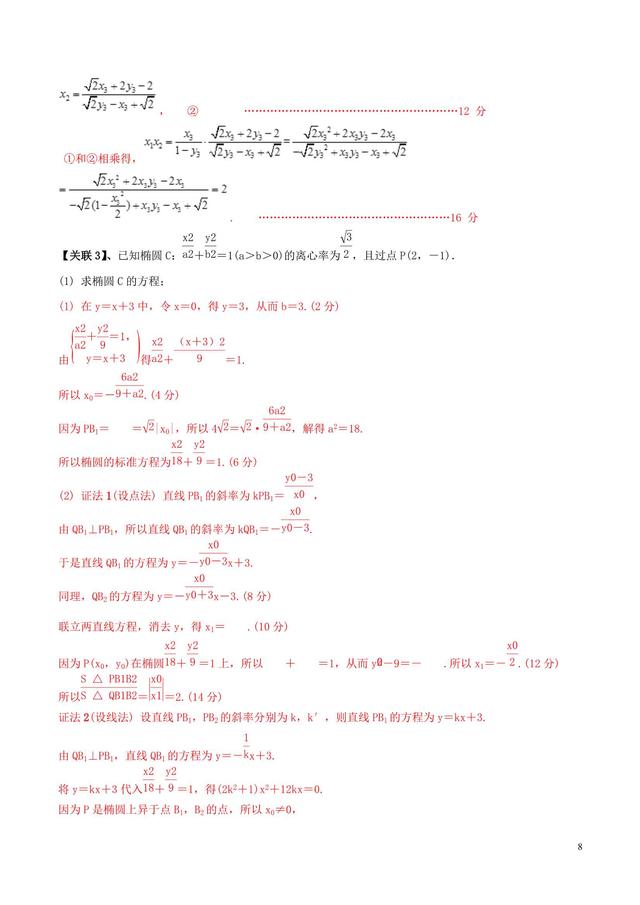 x₂=(√2x₃+2y₃−2)/(√2y₃−x₃+√2), ② ……………………………………………………12 分
①和②相乘得, x₁x₂=x₃/(1−y₃)·(√2x₃+2y₃−2)/(√2y₃−x₃+√2)=(√2x₃²+2x₃y₃−2x₃)/(−√2y₃²+x₃y₃−x₃+√2)
=(√2x₃²+2x₃y₃−2x₃)/(−√2(1−x₃²/2)+x₃y₃−x₃+√2)=2. ………………………………………………16 分
【关联 3】、已知椭圆 C: x2/a2+y2/b2=1(a>b>0)的离心率为√3/2,且过点 P(2,-1).
(1) 求椭圆 C 的方程:
(1) 在 y=x+3 中,令 x=0,得 y=3,从而 b=3.(2 分)
由{x2/a2+y2/9=1, y=x+3)得x2/a2+(x+3)2/9=1.
所以 x₀=-6a2/9+a2.(4 分)
因为 PB₁= =√2|x₀|,所以 4√2=√2·6a2/9+a2,解得 a²=18.
所以椭圆的标准方程为x2/18+y2/9=1.(6 分)
(2) 证法 1(设点法) 直线 PB₁的斜率为 kPB₁=y0-3/x0,
由 QB₁⊥PB₁,所以直线 QB₁的斜率为 kQB₁=-x0/y0-3.
于是直线 QB₁的方程为 y=-x0/y0-3x+3.
同理,QB₂的方程为 y=-x0/y0+3x-3.(8 分)
联立两直线方程,消去 y,得 x₁= .(10 分)
因为 P(x₀,y₀)在椭圆x2/18+y2/9=1 上,所以 + =1,从而 y02-9=- .所以 x₁=-x0/2.(12 分)
所以S △ PB1B2/S △ QB1B2=|x0/x1|=2.(14 分)
证法 2(设线法) 设直线 PB₁,PB₂的斜率分别为 k,k′,则直线 PB₁的方程为 y=kx+3.
由 QB₁⊥PB₁,直线 QB₁的方程为 y=-1/kx+3.
将 y=kx+3 代入x2/18+y2/9=1,得(2k²+1)x²+12kx=0.
因为 P 是椭圆上异于点 B₁,B₂的点,所以 x₀≠0,
8